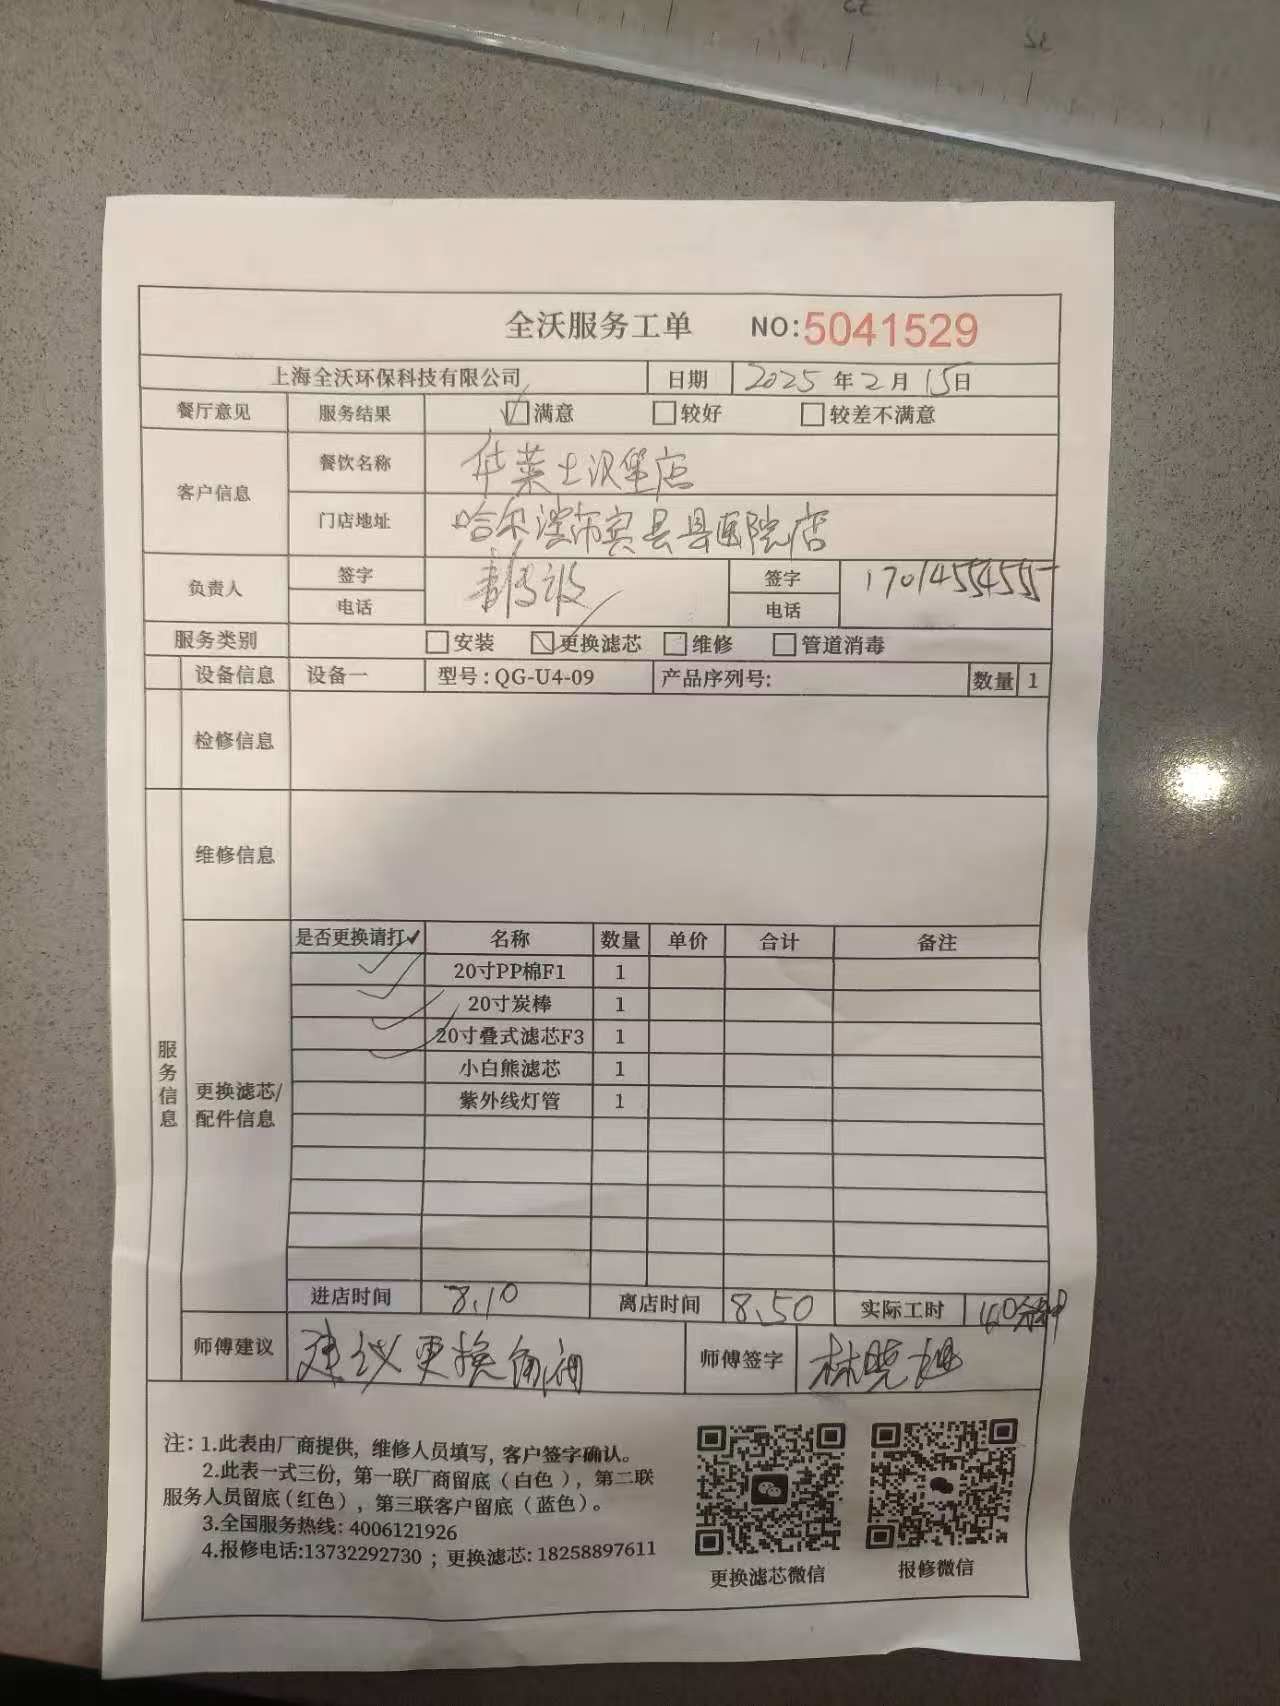 全沃服务工单 NO:5041529
上海全沃环保科技有限公司 日期 2025 年 2 月 15 日
餐厅意见 服务结果 满意 较好 较差不满意
客户信息 餐饮名称 华莱士汉堡店
门店地址 哈尔滨市宾县县医院店
负责人 签字 签字 17014554555
电话 电话
服务类别 安装 更换滤芯 维修 管道消毒
设备信息 设备一 型号:QG-U4-09 产品序列号: 数量 1
检修信息
维修信息
服务信息
更换滤芯/配件信息
是否更换请打✓ 名称 数量 单价 合计 备注
✓ 20寸PP棉F1 1
✓ 20寸炭棒 1
✓ 20寸叠式滤芯F3 1
✓ 小白熊滤芯 1
紫外线灯管 1
进店时间 8.10 离店时间 8.50 实际工时 分钟
师傅建议 建议更换 师傅签字 林晓旭
注:1.此表由厂商提供,维修人员填写,客户签字确认。
2.此表一式三份,第一联厂商留底(白色),第二联
服务人员留底(红色),第三联客户留底(蓝色)。
3.全国服务热线:4006121926
4.报修电话:13732292730 ;更换滤芯:18258897611
更换滤芯微信 报修微信
32